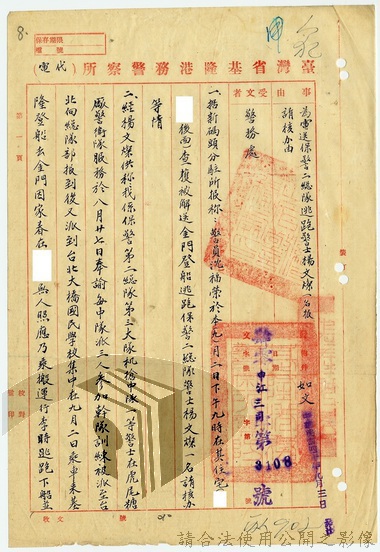 8.
保存期限
檔號
臺灣省基隆港務警察所(代電)
事由 受文者
為電送保警二總隊逃跑警士楊文燦一名報請核办由
警務處
附件 如文
一、据新碼頭分駐所報称:警員姚福榮於本九月二日下午九時在其住宅
後面查獲被解送金門登船逃跑保警二總隊警士楊文燦一名請核办
等情
二、經楊文燦供称我係保警第二總隊第三大隊机槍中隊一等警士在虎尾糖
廠警衛隊服務於八月廿七日奉諭每中隊派三人参加幹隊訓練被派至台
北向總隊部報到後又派到台北大橋國民學校集中在九月二日乘車来基
隆登船去金門因家眷在
無人照應乃乘搬運行李時逃跑下船並
第一頁
字第3108號
九月三日
請合法使用公開之影像